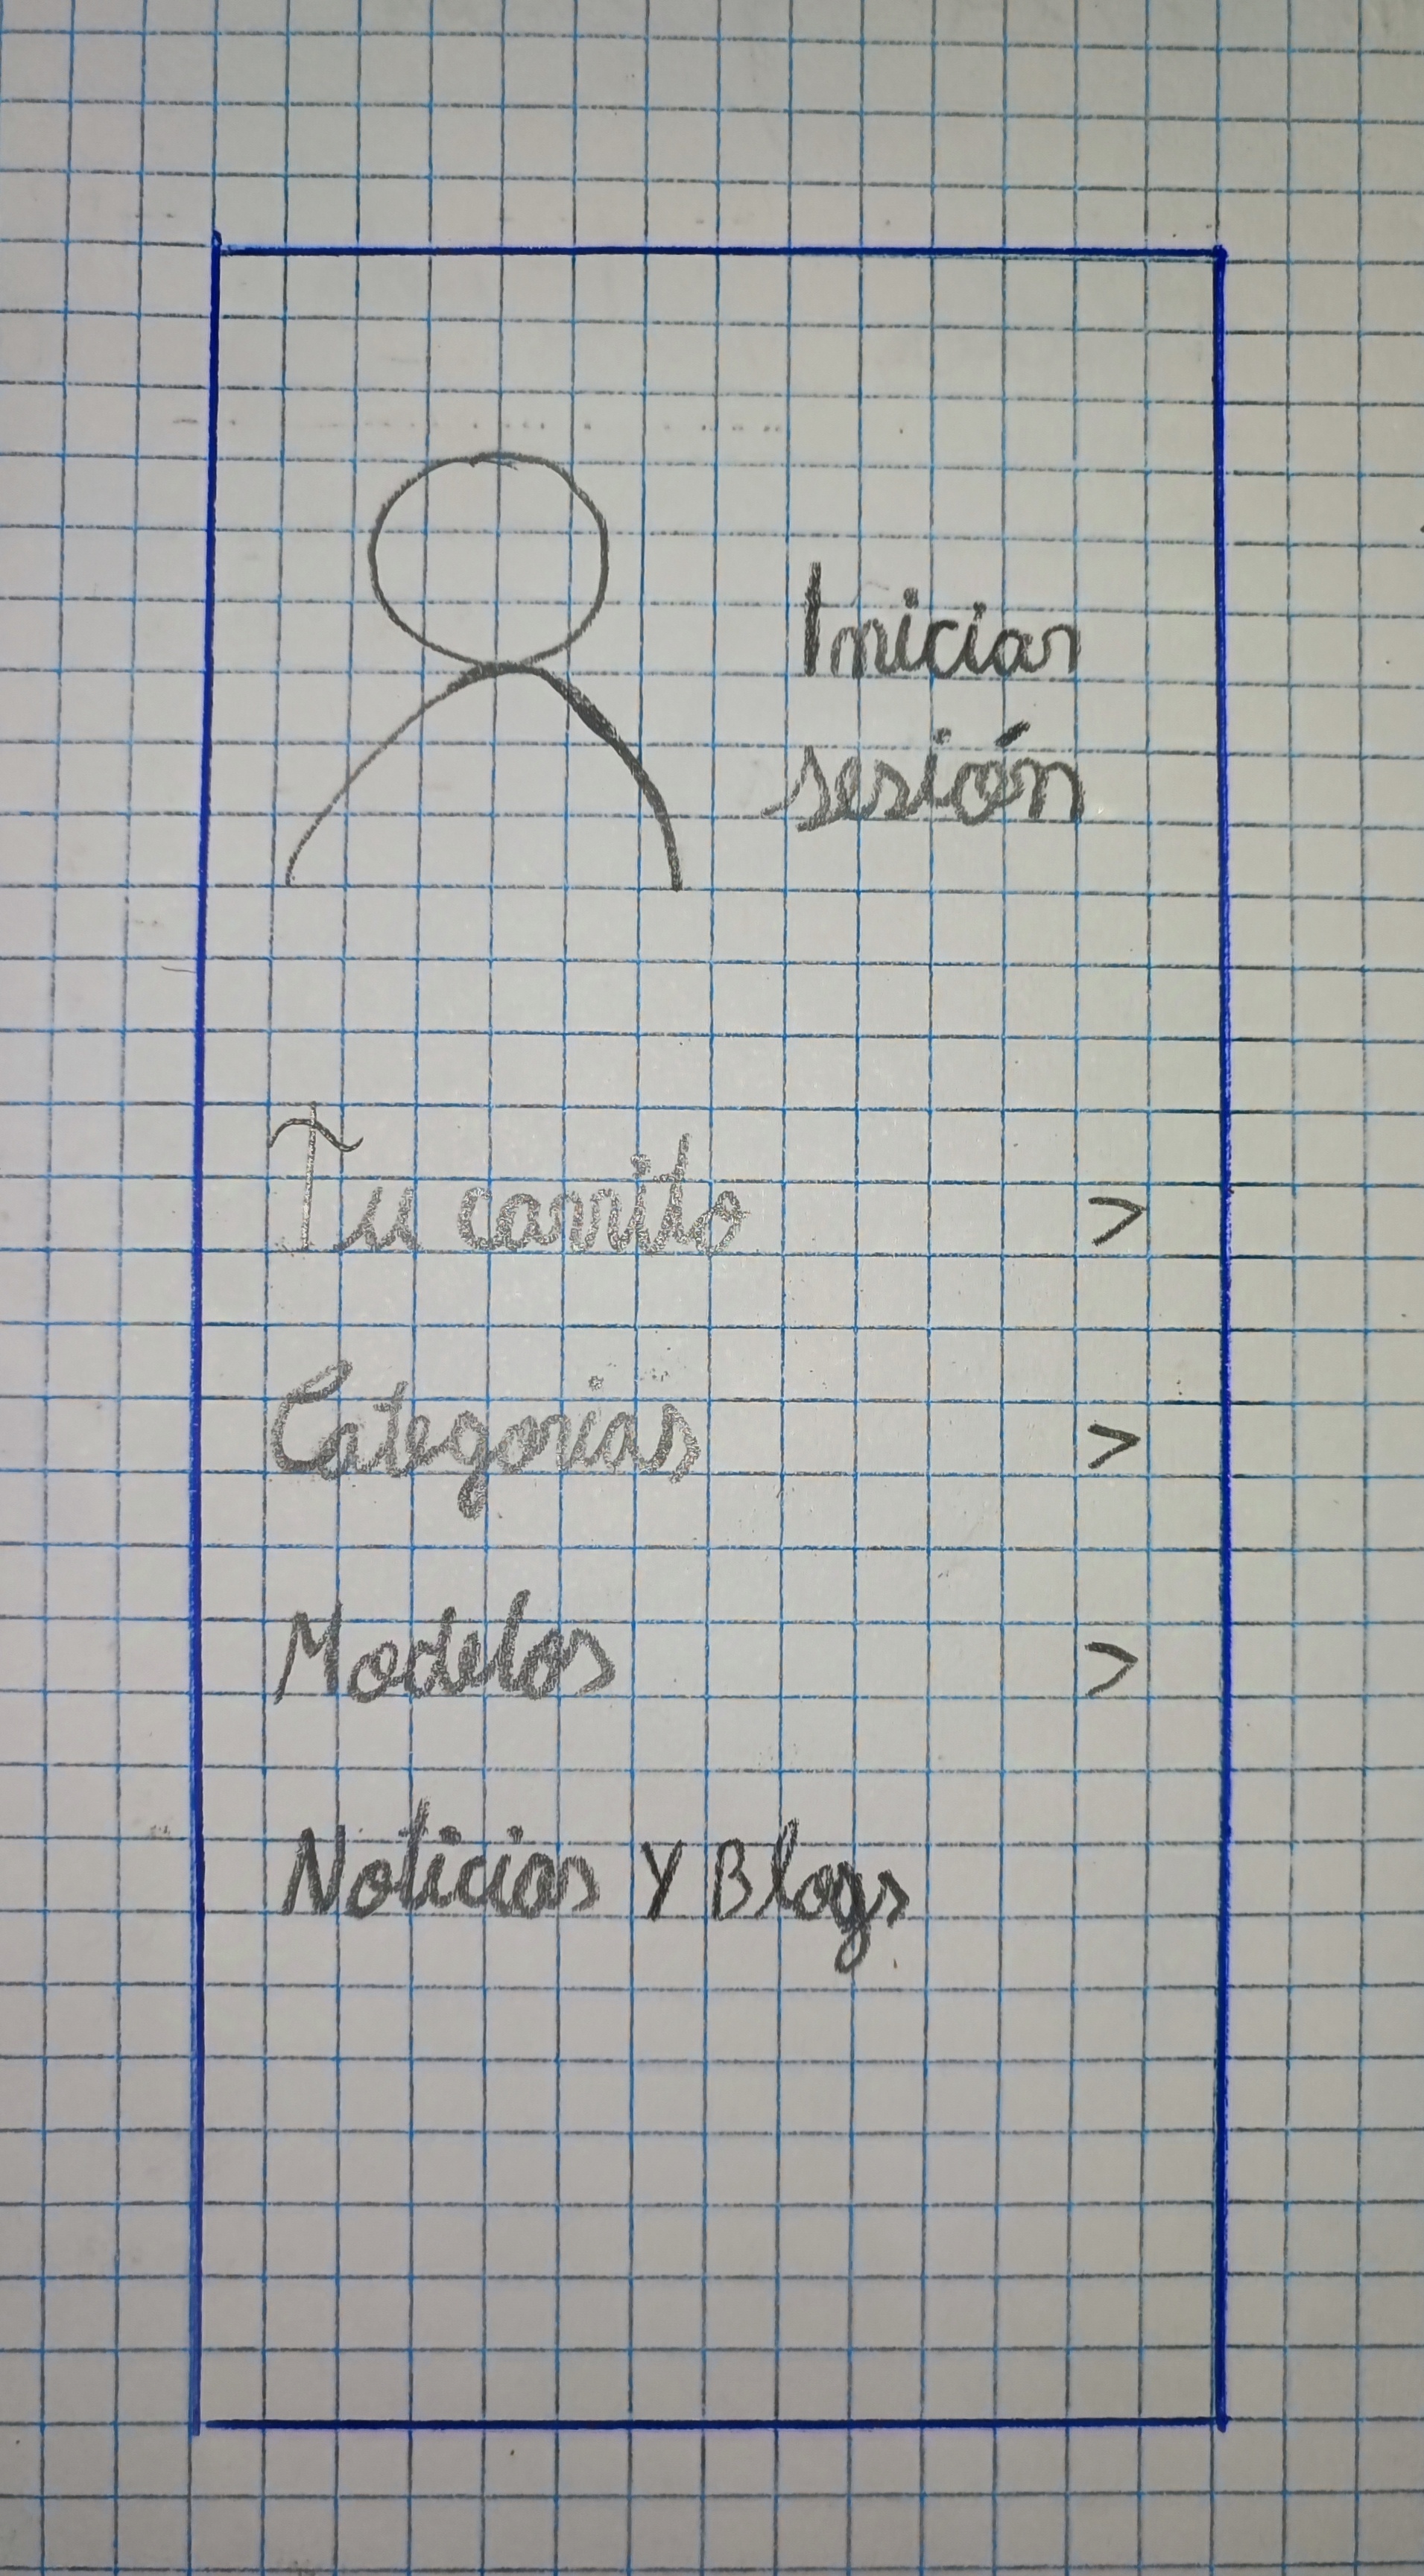 Iniciar
sesión
Tu carrito >
Categorias >
Modelos >
Noticias Y Blogs